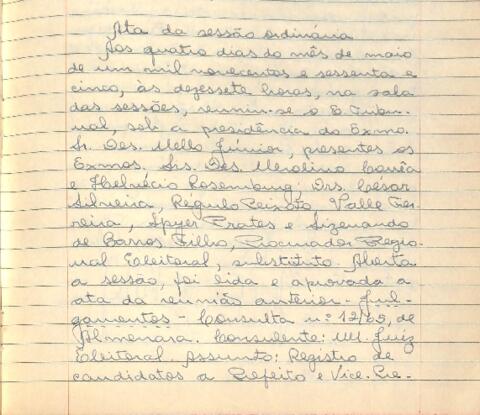 Ata da sessão ordinária
Aos quatro dias do mês de maio
de um mil novecentos e sessenta e
cinco, às dezessete horas, na sala
das sessões, reuniu-se o E. Tribu-
nal, sob a presidência do Exmo.
Sr. Des. Mello Júnior, presentes os
Exmos. Srs. Des. Merolino Corrêa
e Helvécio Rosemburg; Drs. César
Silveira, Régulo Peixoto, Valle Fer-
reira, Spyer Prates e Sizenando
de Barros Filho, Procurador Regio-
nal Eleitoral, substituto. Aberta
a sessão, foi lida e aprovada a
ata da reunião anterior - Jul-
gamentos - Consulta n.º 12/65, de
Almenara. Consulente: M. Juiz
Eleitoral. Assunto: Registro de
candidatos a Prefeito e Vice-Pre-